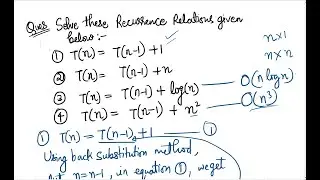 Ques Solve these Recurrence Relations given
below:-
① T(n) = T(n-1)+1 ✓ n×1
② T(n) = T(n-1)+n n×n
③ T(n) = T(n-1)+log(n) — O(n log n)
④ T(n) = T(n-1)+n² — O(n³)
① T(n) = T(n-1)+1 — ①
Using back Substitution method,
n=n-1, in equation ①, we get